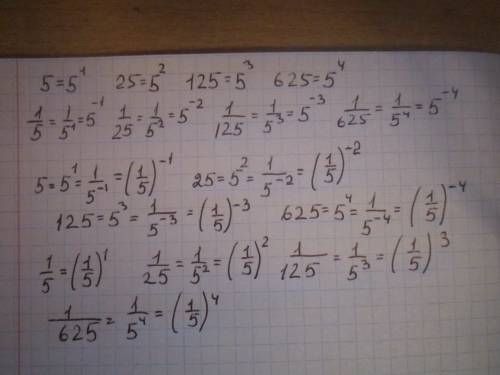 5 = 5¹ 25 = 5² 125 = 5³ 625 = 5⁴
1/5 = 1/5¹ = 5⁻¹ 1/25 = 1/5² = 5⁻² 1/125 = 1/5³ = 5⁻³ 1/625 = 1/5⁴ = 5⁻⁴
5 = 5¹ = 1/5⁻¹ = (1/5)⁻¹ 25 = 5² = 1/5⁻² = (1/5)⁻²
125 = 5³ = 1/5⁻³ = (1/5)⁻³ 625 = 5⁴ = 1/5⁻⁴ = (1/5)⁻⁴
1/5 = (1/5)¹ 1/25 = 1/5² = (1/5)² 1/125 = 1/5³ = (1/5)³
1/625 = 1/5⁴ = (1/5)⁴